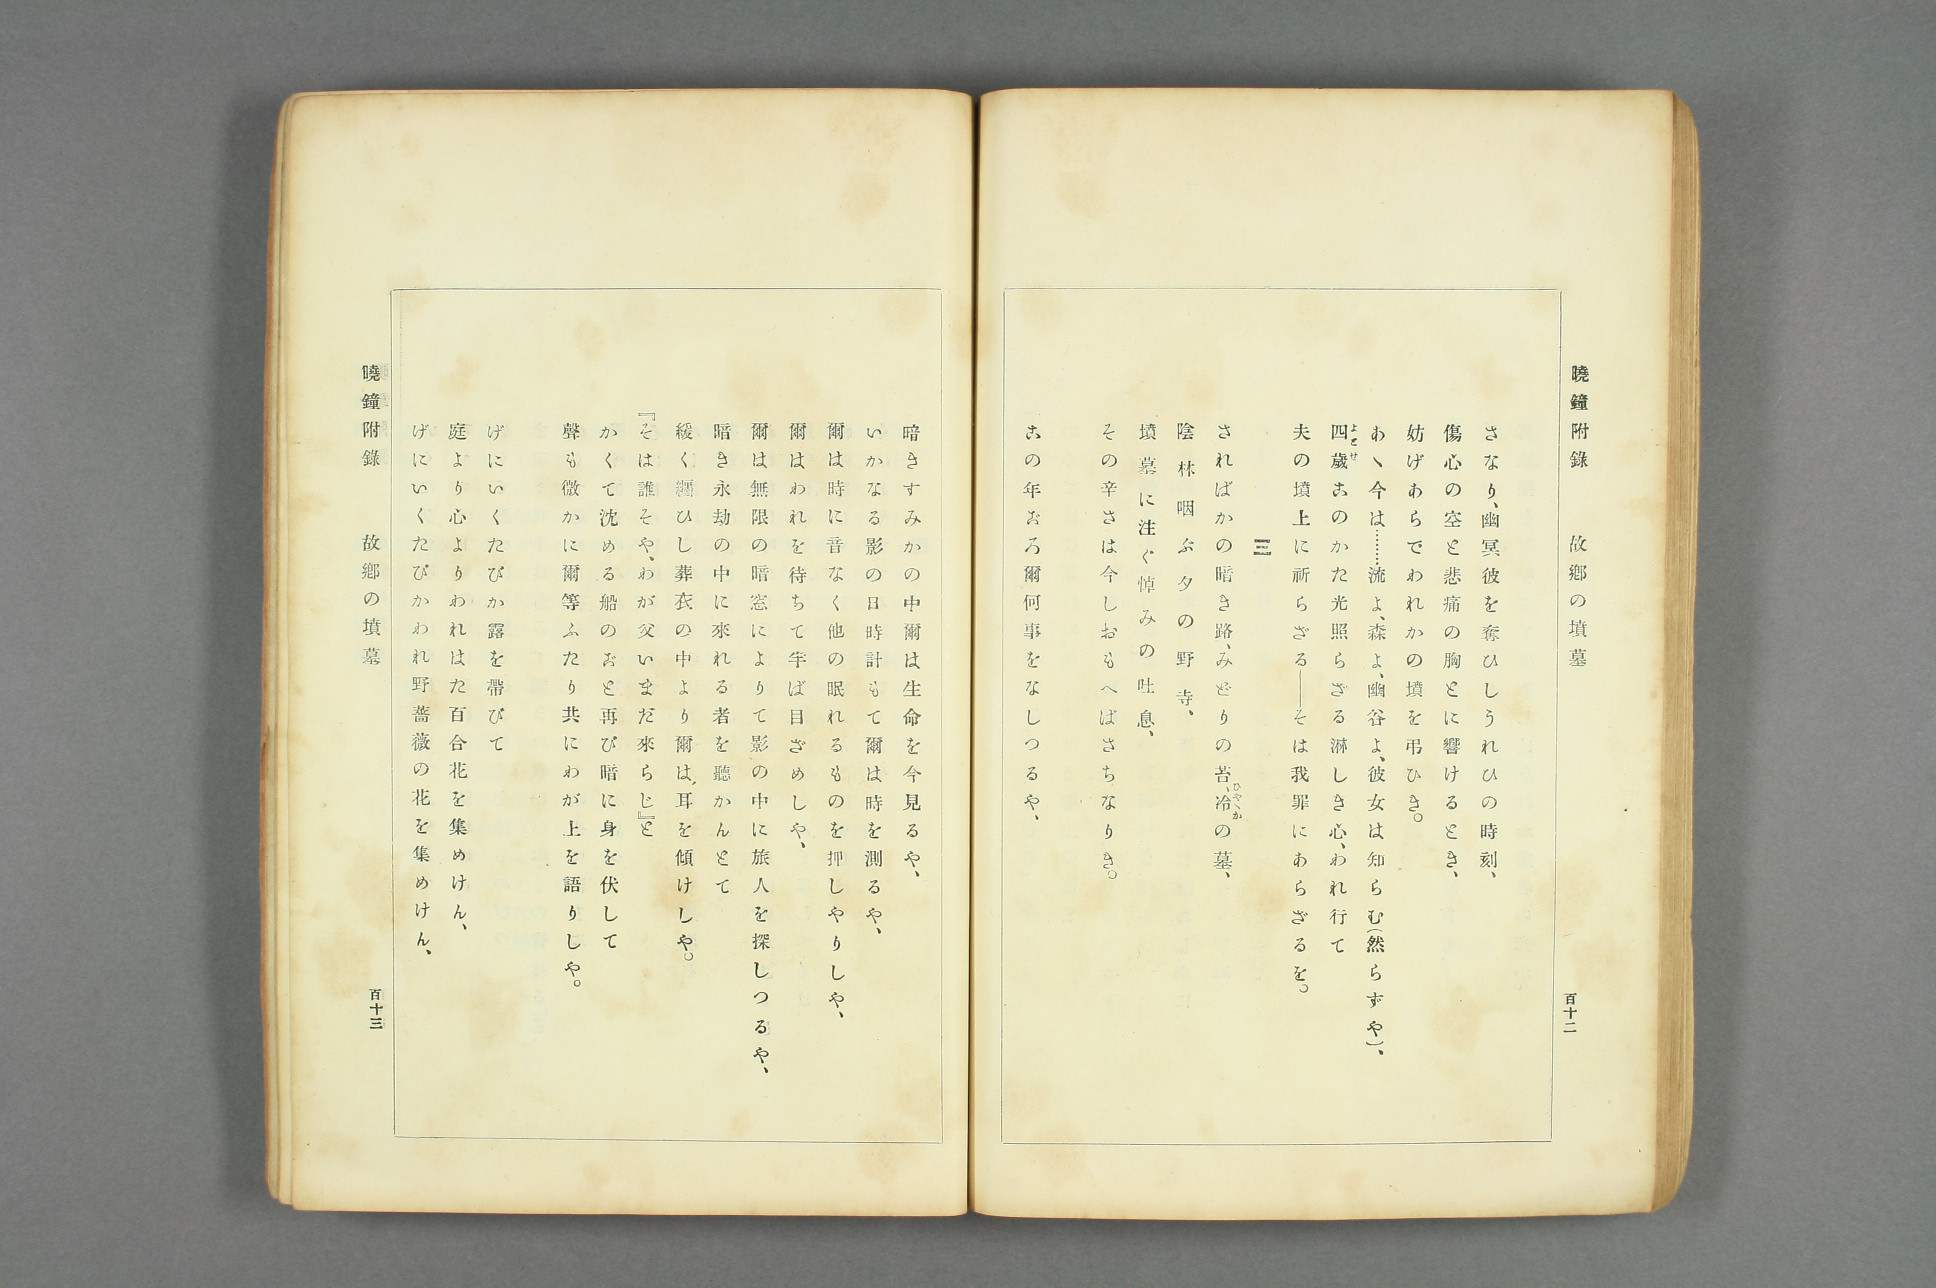 曉鐘附錄　故鄕の墳墓
百十二
さなり、幽冥彼を奪ひしうれひの時刻、
傷心の空と悲痛の胸とに響けるとき、
妨げあらでわれかの墳を弔ひき。
あゝ今は………流よ、森よ、幽谷よ、彼女は知らむ(然らずや)、
四歲このかた光照らざる淋しき心、われ行て
よとせ
夫の墳上に祈らざる――そは我罪にあらざるを。
三
さればかの暗き路、みどりの苔、冷の墓、
ひやゝか
陰林咽ぶ夕の野寺、
墳墓に注ぐ悼みの吐息、
その辛さは今しおもへばさちなりき。
この年ごろ爾何事をなしつるや、
暗きすみかの中爾は生命を今見るや、
いかなる影の日時計もて爾は時を測るや、
爾は時に音なく他の眠れるものを押しやりしや、
爾はわれを待ちて半ば目ざめしや、
爾は無限の暗窓によりて影の中に旅人を探しつるや、
暗き永劫の中に來れる者を聽かんとて
緩く纒ひし葬衣の中より爾は耳を傾けしや。
『そは誰そや、わが父いまだ來らじ』と
かくて沈める船のごと再び暗に身を伏して
聲も微かに爾等ふたり共にわが上を語りしや。
げにいくたびか露を帶びて
庭より心よりわれはた百合花を集めけん、
げにいくたびかわれ野薔薇の花を集めけん、
曉鐘附錄　故鄕の墳墓
百十三